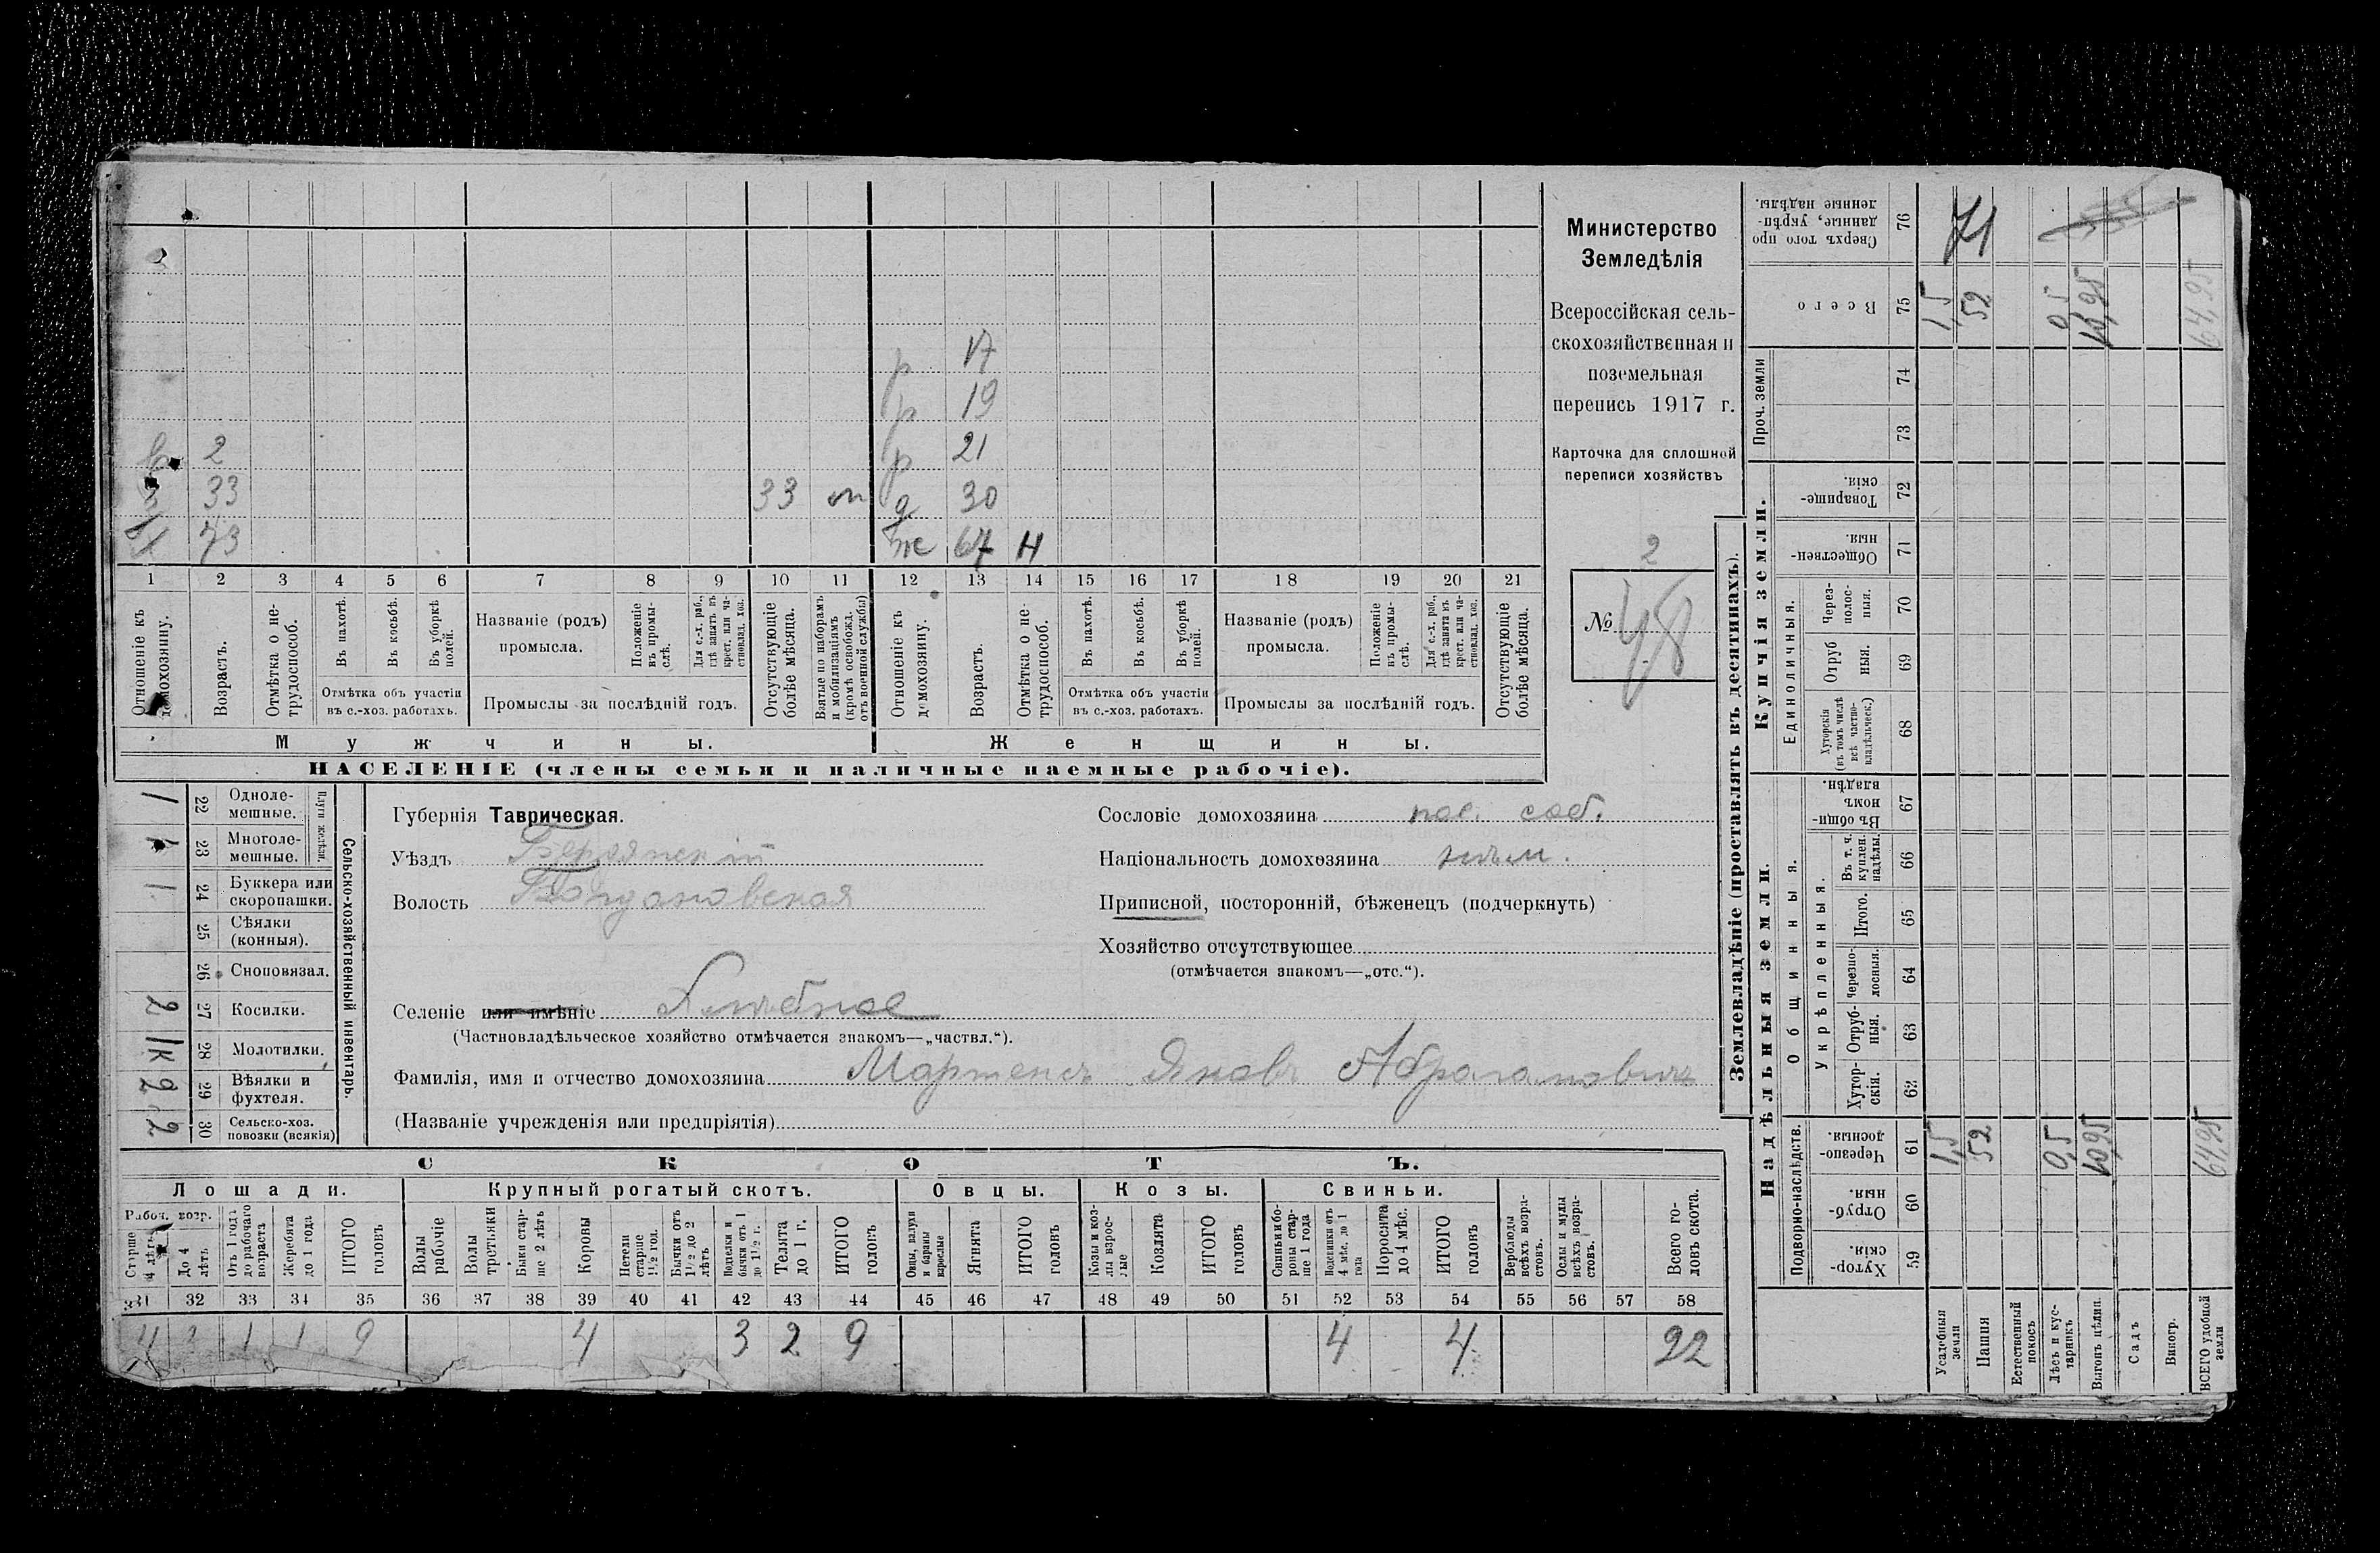 17
19
р 21
2
33 33 м 30
73 67 Н
1 2 3 4 5 6 7 8 9 10 11 12 13 14 15 16 17 18 19 20 21
Отношеніе къ домохозяину.
Возрастъ.
Отмѣтка о не-трудоспособ.
Въ пахотѣ.
Въ косьбѣ.
Въ уборкѣ полей.
Отмѣтка объ участіи
въ с.-хоз. работахъ.
Названіе (родъ)
промысла.
Положеніе въ промы-слѣ.
Для с.-х. раб., гдѣ занятъ въ крест. или ча-стновлад. хоз.
Промыслы за послѣдній годъ.
Отсутствующіе болѣе мѣсяца.
Взятые по наборамъ и мобилизаціямъ (кромѣ освобожд. отъ военной службы)
Отношеніе къ домохозяину.
Возрастъ.
Отмѣтка о не-трудоспособ.
Въ пахотѣ.
Въ косьбѣ.
Въ уборкѣ полей.
Отмѣтка объ участіи
въ с.-хоз. работахъ.
Названіе (родъ)
промысла.
Положеніе въ промы-слѣ.
Для с.-х. раб., гдѣ занята въ крест. или ча-стновлад. хоз.
Промыслы за послѣдній годъ.
Отсутствующіе болѣе мѣсяца.
Мужчины.
Женщины.
НАСЕЛЕНІЕ (члены семьи и наличные наемные рабочіе).
Министерство
Земледѣлія
Всероссійская сель-
скохозяйственная и
поземельная
перепись 1917 г.
Карточка для сплошной
переписи хозяйствъ
2
№ 48
Сельско-хозяйственный инвентарь.
Плуги желѣзн.
1 22 Одноле-мешные.
1 23 Многоле-мешные.
1 24 Буккера или скоропашки.
25 Сѣялки (конныя).
26 Сноповязал.
2 27 Косилки.
1к 28 Молотилки.
2 29 Вѣялки и фухтеля.
2 30 Сельско-хоз. повозки (всякія)
Губернія Таврическая.
Уѣздъ Бердянскій
Волость Богдановская
Селеніе или имѣніе
(Частновладѣльческое хозяйство отмѣчается знакомъ—„частвл.“).
Фамилія, имя и отчество домохозяина Мартенсъ Яковъ Абрагамовичъ
(Названіе учрежденія или предпріятія)
Сословіе домохозяина пос. соб.
Національность домохозяина нѣм.
Приписной, посторонній, бѣженецъ (подчеркнуть)
Хозяйство отсутствующее
(отмѣчается знакомъ—„отс.“).
СКОТЪ.
Лошади. Крупный рогатый скотъ. Овцы. Козы. Свиньи.
Рабоч. возр.
Старше 4 лѣтъ
До 4 лѣтъ
Отъ 1 года до рабочаго возраста
Жеребята до 1 года
ИТОГО головъ
Волы рабочіе
Волы третьяки
Быки стар-ше 2 лѣтъ
Коровы
Нетели старше 1½ год.
Бычки отъ 1½ до 2 лѣтъ
Подтелки и бычки отъ 1 до 1½ г.
Телята до 1 г.
ИТОГО головъ
Овцы, валухи и бараны взрослые
Ягнята
ИТОГО головъ
Козы и коз-лы взрос-лые
Козлята
ИТОГО головъ
Свиньи и бо-ровы стар-ше 1 года
Подсвинки отъ 4 мѣс. до 1 года
Поросята до 4 мѣс.
ИТОГО головъ
Верблюды всѣхъ возра-стовъ.
Ослы и мулы всѣхъ возра-стовъ.
Всего го-ловъ скота.
31 32 33 34 35 36 37 38 39 40 41 42 43 44 45 46 47 48 49 50 51 52 53 54 55 56 57 58
4 1 1 9 4 3 2 9 4 4 22
Землевладѣніе (проставлять въ десятинахъ).
Надѣльныя земли.
Купчія земли.
Подворно-наслѣдств.
Общинныя.
Укрѣпленныя.
Единоличныя.
Проч. земли
Хутор-скія. 59
Отруб-ныя. 60
Черезпо-лосныя. 61
Хутор-скія. 62
Отруб-ныя. 63
Черезпо-лосныя. 64
Итого. 65
Въ т. ч. куплен. надѣлы. 66
Въ общин-номъ владѣн. 67
Хуторскія (въ томъ числѣ всѣ частно-владѣльческ.) 68
Отруб ныя. 69
Через-полос-ныя. 70
Обществен-ныя. 71
Товарище-скія. 72
73
74
Всего 75
Сверхъ того про данные, укрѣп-ленные надѣлы. 76
71
Усадебныя земли 1,5 1,5
Пашня 52 52
Естественный покосъ
Лѣсъ и кус-тарникъ 0,5 0,5
Выгонъ цѣлин. 10,95 10,95
Садъ
Виногр.
ВСЕГО удобной земли 64,95 64,95